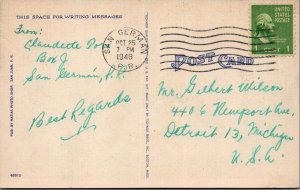 THIS SPACE FOR WRITING MESSAGES
From:
Claudette
Box J
San Germán, P.R.
Best Regards
SAN GERMAN
OCT 25
7 PM
1948
P.R.
UNITED STATES POSTAGE
1
POST CARD
Mr. Gilbert Wilson
4406 Newport Ave,
Detroit 13, Michigan
U.S.A.